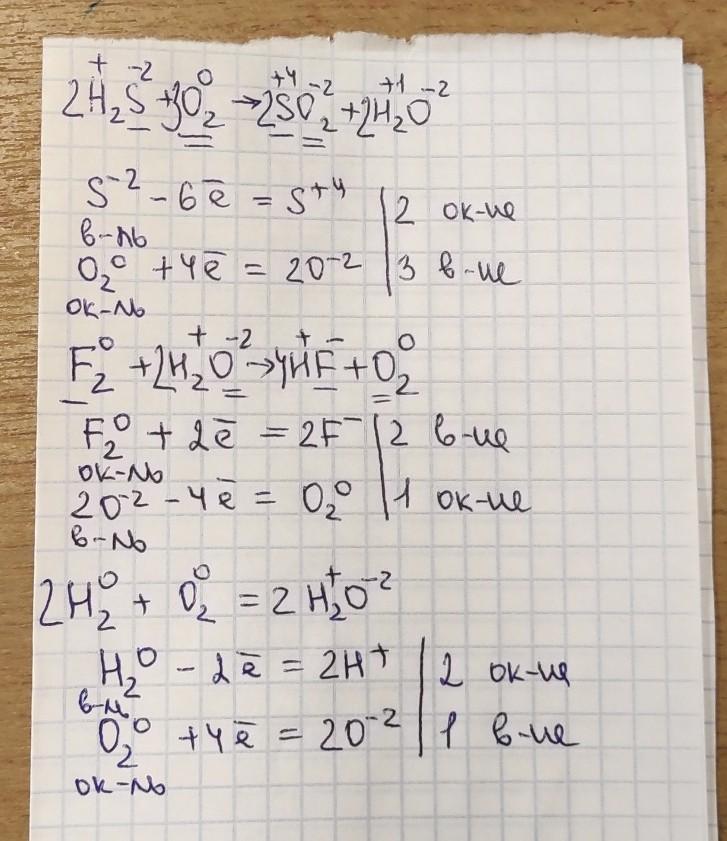 2H₂⁺S⁻² + 3O₂⁰ → 2S⁺⁴O₂⁻² + 2H₂⁺¹O⁻²
S⁻² - 6ē = S⁺⁴ | 2 ок-ие
в-ль
O₂⁰ + 4ē = 2O⁻² | 3 в-ие
ок-ль
F₂⁰ + 2H₂⁺O⁻² → 4H⁺F⁻ + O₂⁰
F₂⁰ + 2ē = 2F⁻ | 2 в-ие
ок-ль
2O⁻² - 4ē = O₂⁰ | 1 ок-ие
в-ль
2H₂⁰ + O₂⁰ = 2H₂⁺O⁻²
H₂⁰ - 2ē = 2H⁺ | 2 ок-ие
в-ль
O₂⁰ + 4ē = 2O⁻² | 1 в-ие
ок-ль